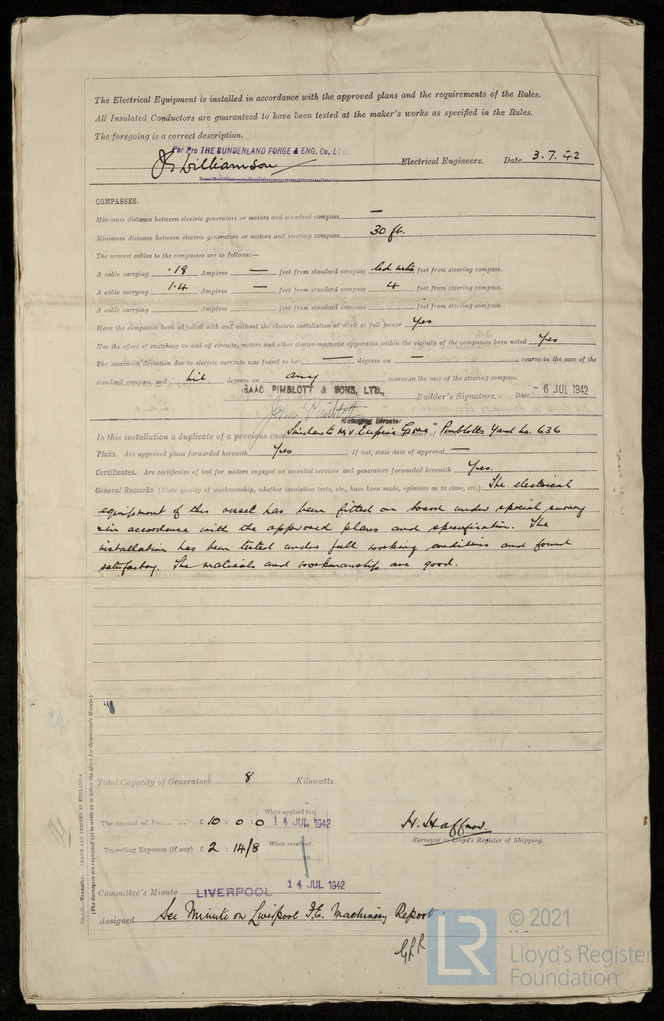 The Electrical Equipment is installed in accordance with the approved plans and the requirements of the Rules.
All Insulated Conductors are guaranteed to have been tested at the maker's works as specified in the Rules.
The foregoing is a correct description.
Per Pro THE SUNDERLAND FORGE & ENG. Co. LTD.
Williamson Electrical Engineers. Date 3.7.42
COMPASSES.
Minimum distance between electric generators or motors and standard compass —
Minimum distance between electric generators or motors and steering compass 30 ft.
The nearest cables to the compasses are as follows:—
A cable carrying .18 Ampères — feet from standard compass led into feet from steering compass.
A cable carrying 1.4 Ampères — feet from standard compass 4 feet from steering compass.
A cable carrying Ampères feet from standard compass feet from steering compass.
Have the compasses been adjusted with and without the electric installation at work at full power Yes
Has the effect of switching on and off circuits, motors and other electro-magnetic apparatus within the vicinity of the compasses been noted Yes
The maximum deviation due to electric currents was found to be — degrees on — course in the case of the
standard compass, and nil degrees on any course in the case of the steering compass.
ISAAC PIMBLOTT & SONS, LTD.,
John Pimblott Builder's Signature. Date - 6 JUL 1942
Managing Director
Is this installation a duplicate of a previous case Similar to M.V. "Empire " Pimblotts Yard No. 636
Plans. Are approved plans forwarded herewith Yes If not, state date of approval —
Certificates. Are certificates of test for motors engaged on essential services and generators forwarded herewith Yes.
General Remarks (State quality of workmanship, whether insulation tests, etc., have been made, opinions as to class, etc.) The electrical
equipment of this vessel has been fitted on board under special survey
& in accordance with the approved plans and specification. The
installation has been tested under full working conditions and found
satisfactory. The materials and workmanship are good.
Total Capacity of Generators 8 Kilowatts.
The amount of Fee £ 10 : 0 : 0 When applied for, 14 JUL 1942
Travelling Expenses (if any) £ 2 : 14/8 When received, 19
H. Surveyor to Lloyd's Register of Shipping.
Committee's Minute LIVERPOOL 14 JUL 1942
Assigned See Minute on Liverpool F.E. Machinery Report.
(The Surveyors are requested not to write on or below the space for Committee's Minute.)
Transfer. (MADE AND PRINTED IN ENGLAND.)
LR © 2021
Lloyd's Register
Foundation